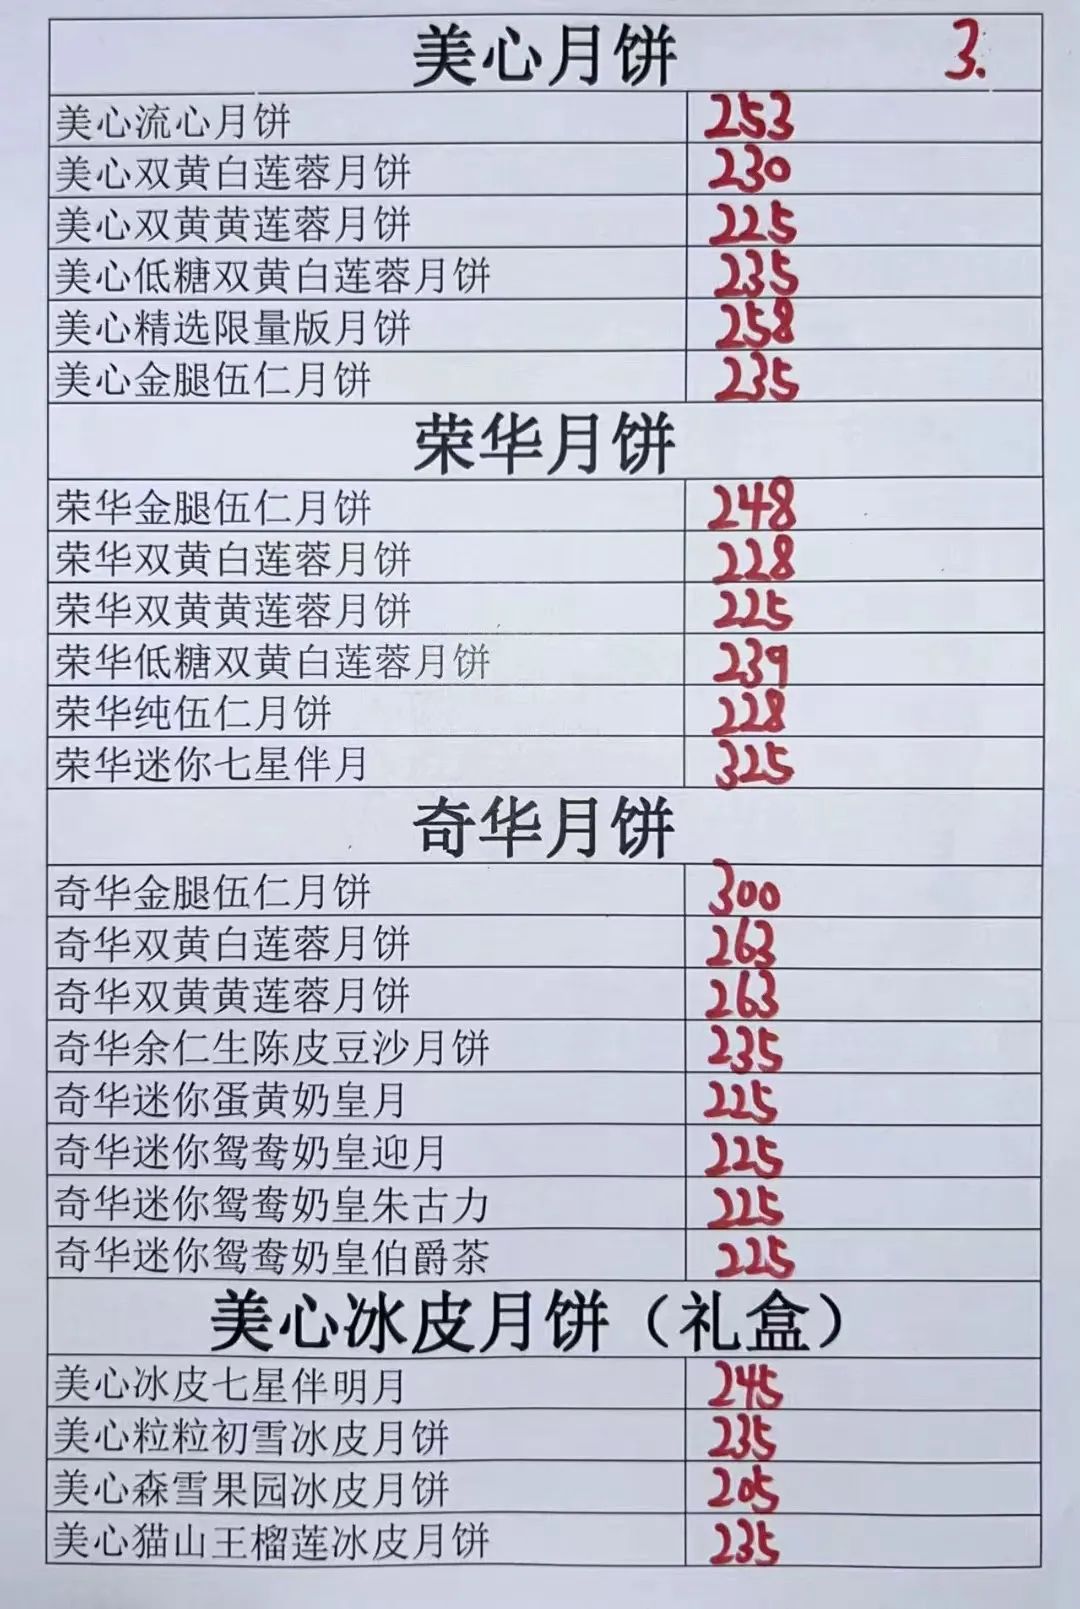 美心月饼 3.
美心流心月饼 253
美心双黄白莲蓉月饼 230
美心双黄黄莲蓉月饼 225
美心低糖双黄白莲蓉月饼 235
美心精选限量版月饼 258
美心金腿伍仁月饼 235
荣华月饼
荣华金腿伍仁月饼 248
荣华双黄白莲蓉月饼 228
荣华双黄黄莲蓉月饼 225
荣华低糖双黄白莲蓉月饼 239
荣华纯伍仁月饼 228
荣华迷你七星伴月 325
奇华月饼
奇华金腿伍仁月饼 300
奇华双黄白莲蓉月饼 263
奇华双黄黄莲蓉月饼 263
奇华余仁生陈皮豆沙月饼 235
奇华迷你蛋黄奶皇月 225
奇华迷你鸳鸯奶皇迎月 225
奇华迷你鸳鸯奶皇朱古力 225
奇华迷你鸳鸯奶皇伯爵茶 225
美心冰皮月饼（礼盒）
美心冰皮七星伴明月 245
美心粒粒初雪冰皮月饼 235
美心森雪果园冰皮月饼 205
美心猫山王榴莲冰皮月饼 235